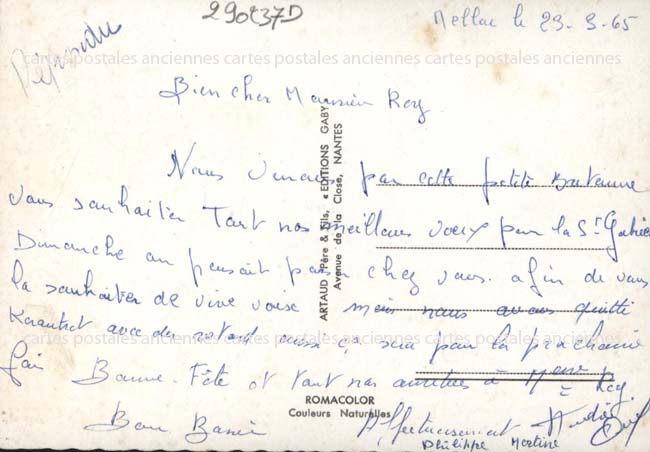 290237D
Mellac le 23-3-65
Répondu
cartes postales anciennes cartes postales anciennes cartes postales anciennes
Bien cher Monsieur Rey
Nous venons par cette petite Bretonne
vous souhaiter Tout nos meilleurs voeux pour la St Gabriel
Dimanche on pensait passer chez vous. afin de vous
la souhaiter de vive voise mais nous avons quitté
avec du retard aussi ça sera pour la prochaine
fois Bonne Fête et tout nos amitiés à Mme Rey
Bon Baiser Affectueusement
Philippe Martine
ARTAUD Père & Fils, « EDITIONS GABY »
Avenue de la Close, NANTES
ROMACOLOR
Couleurs Naturelles
cartes postales anciennes cartes postales anciennes cartes postales anciennes